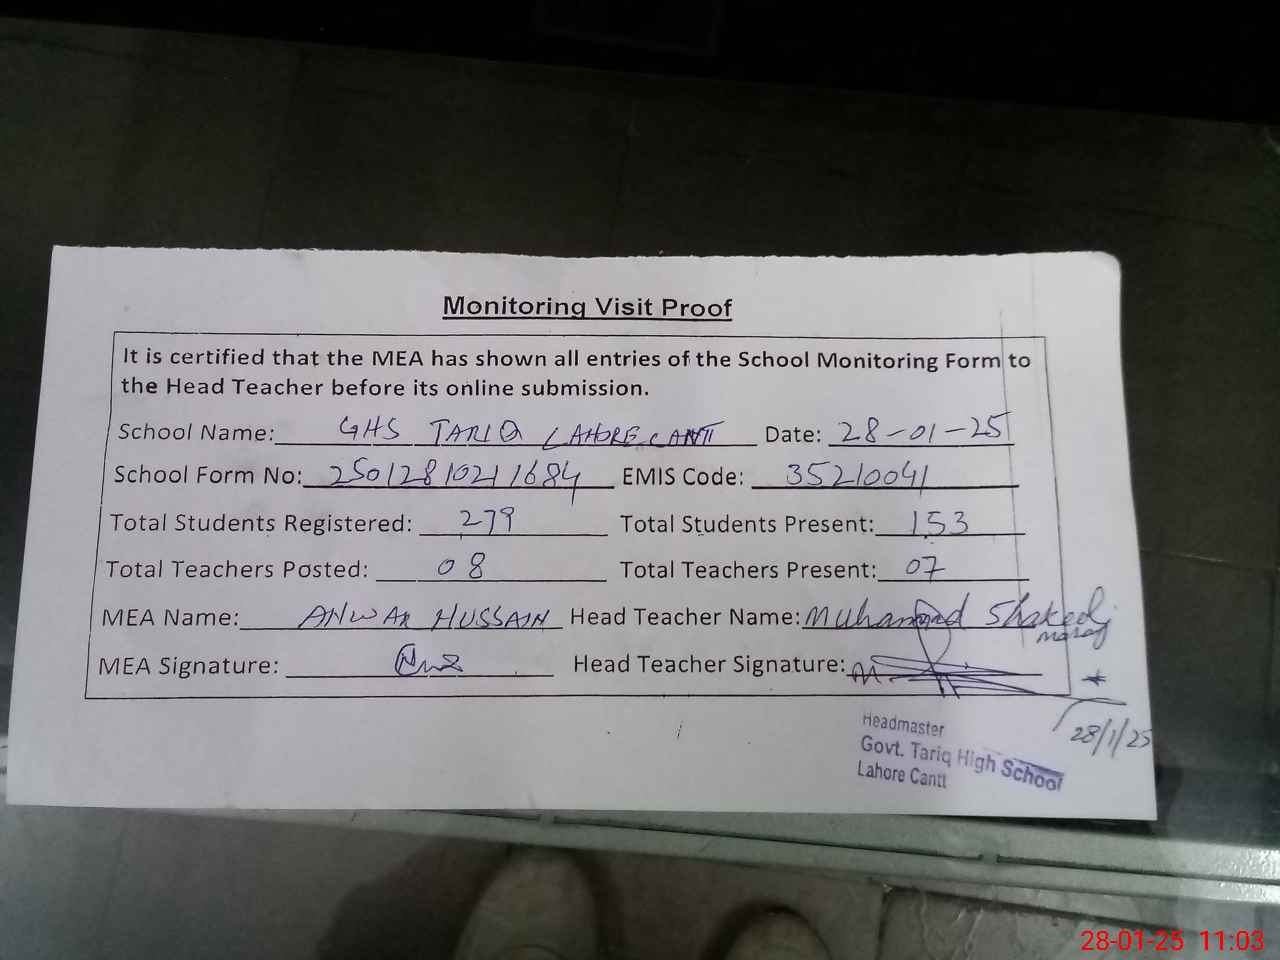 Monitoring Visit Proof
It is certified that the MEA has shown all entries of the School Monitoring Form to
the Head Teacher before its online submission.
School Name: GHS TARIQ LAHORE CANTT Date: 28-01-25
School Form No: 25012810211684 EMIS Code: 35210041
Total Students Registered: 279 Total Students Present: 153
Total Teachers Posted: 08 Total Teachers Present: 07
MEA Name: ANWAR HUSSAIN Head Teacher Name: Muhammad Shakeel
MEA Signature: Head Teacher Signature:
28/1/25
Headmaster
Govt. Tariq High School
Lahore Cantt
28-01-25 11:03